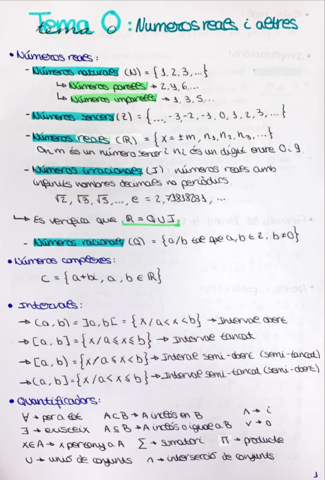 Tema 0: Numeros reals i altres
• Números reals:
- Números naturals (N) = {1, 2, 3, ...}
↳ Números parells → 2, 4, 6...
↳ Números imparells → 1, 3, 5...
- Números sencers (Z) = {..., -3, -2, -1, 0, 1, 2, 3, ...}
- Números reals (R) = {x = ± m, n₁, n₂, n₃, ...}
On m és un número sencer i nᵢ és un dígit entre 0 i 9
- Números irracionals (I) números reals amb
infinits nombres decimals no periòdics.
√2, √3, √5, ..., e = 2,7181281, ...
↳ És verifica que R = Q U I
- Números racionals (Q) = {a/b tal que a, b ∈ Z, b ≠ 0}
• Números complexes:
C = {a+bi, a, b ∈ R}
• Intervals:
→ (a, b) = ]a, b[ = {x / a < x < b} → Interval obert
→ [a, b] = {x / a ≤ x ≤ b} → Interval tancat
→ [a, b) = {x / a ≤ x < b} → Interval semi-obert (semi-tancat)
→ (a, b] = {x / a < x ≤ b} → Interval semi-tancat (semi-obert)
• Quantificadors:
∀ → per a tot A ⊂ B → A inclòs en B ∧ → i
∃ → existeix A ⊆ B → A inclòs o igual a B ∨ → o
x ∈ A → x pertany a A ∑ → sumatori ∏ → producte
∪ → unió de conjunts ∩ → intersecció de conjunts
1